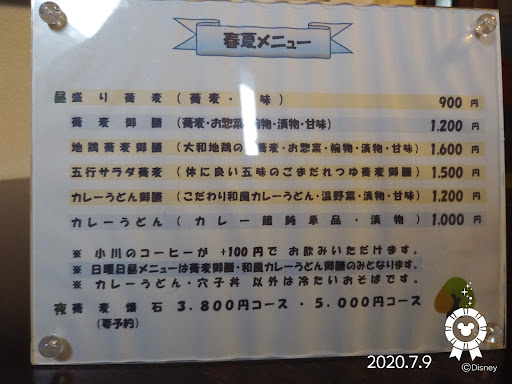 春夏メニュー
昼 盛り蕎麦 (蕎麦・ 味) 900 円
蕎麦御膳 (蕎麦・お惣菜・椀物・漬物・甘味) 1.200 円
地鶏蕎麦御膳 (大和地鶏の 蕎麦・お惣菜・椀物・漬物・甘味) 1.600 円
五行サラダ蕎麦 (体に良い五味のごまだれつゆ蕎麦御膳) 1.500 円
カレーうどん御膳 (こだわり和風カレーうどん・温野菜・漬物・甘味) 1.200 円
カレーうどん (カレー饂飩単品・漬物) 1,000 円
※ 小川のコーヒーが +100円で お飲みいただけます。
※ 日曜日昼メニューは蕎麦御膳・和風カレーうどん御膳のみとなります。
※ カレーうどん・穴子丼 以外は冷たいおそばです。
夜 蕎麦懐石 3.800円コース・5.000円コース
(要予約)
2020.7.9
©Disney